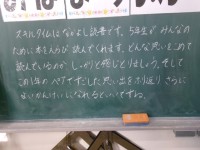 スキルタイムはなかよし読書です。5年生が みんなの
ために本をえらび 読んでくれます。どんな思いをこめて
読んでいるのか しっかりと感じとりましょう。そして
この1年の ペアですごした思い出をふり返り さらに
なかよくなれるといいですね。